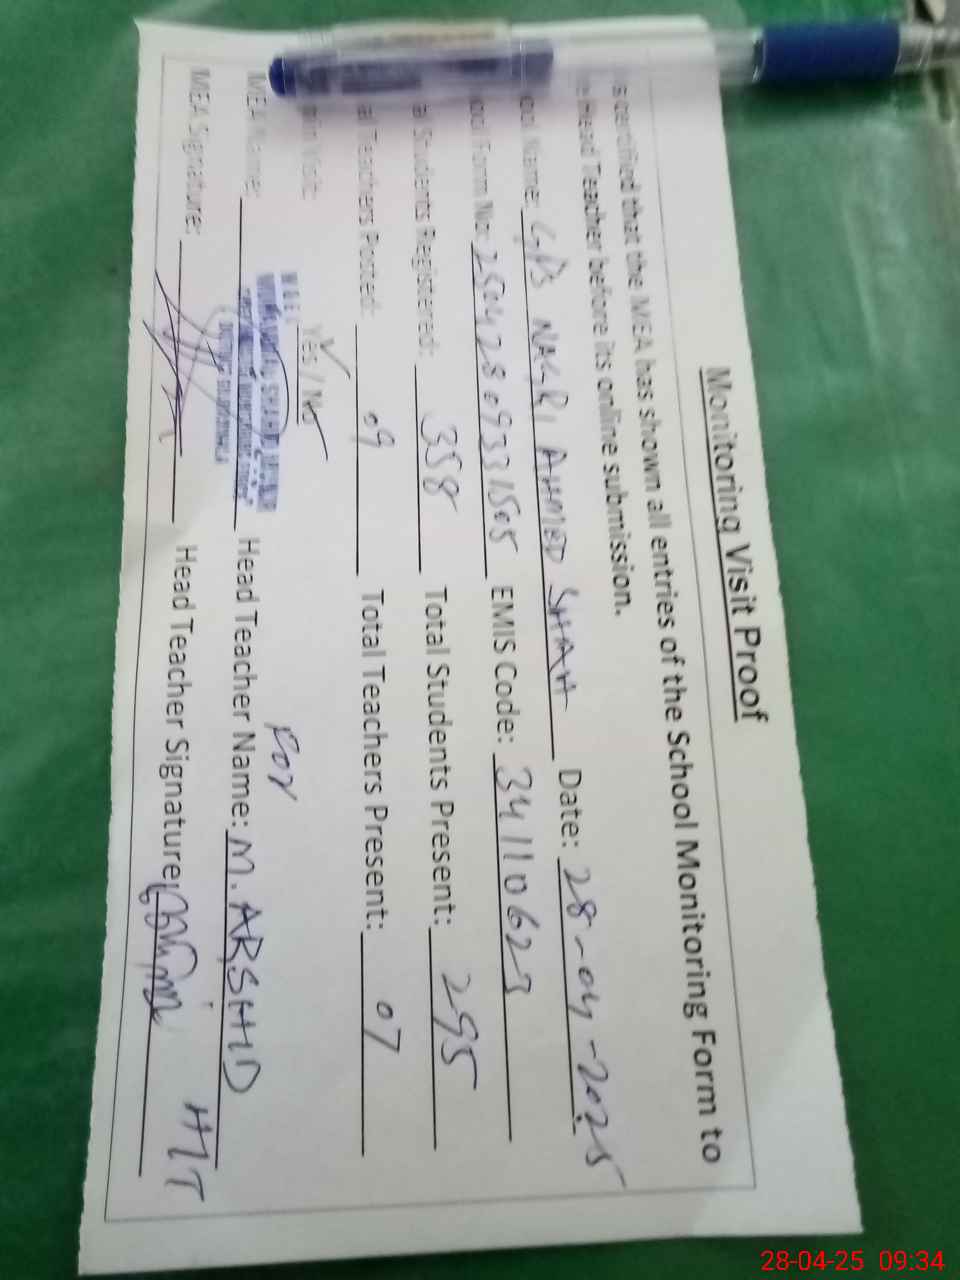 Monitoring Visit Proof
is certified that the MEA has shown all entries of the School Monitoring Form to
Head Teacher before its online submission.
Name: GPS NAGRI AHMED SHAH Date: 28-04-2025
Form No: 250428093331505 EMIS Code: 34110623
Students Registered: 358 Total Students Present: 295
Teachers Posted: 09 Total Teachers Present: 07
Visit: Yes / No
For
MEA Name: Head Teacher Name: M. ARSHID
MEA Signature: Head Teacher Signature:
HT
28-04-25 09:34